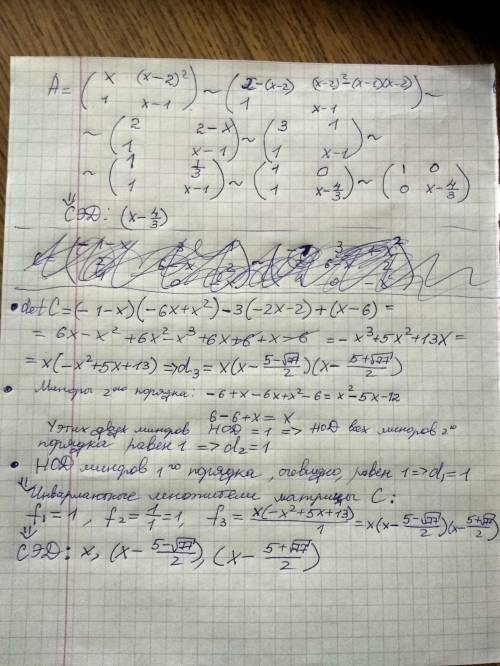 A = ( x (x-2)² ; 1 x-1 ) ~ ( x-(x-2) (x-2)²-(x-1)(x-2) ; 1 x-1 ) ~
~ ( 2 2-x ; 1 x-1 ) ~ ( 3 1 ; 1 x-1 ) ~
~ ( 1 1/3 ; 1 x-1 ) ~ ( 1 0 ; 1 x-4/3 ) ~ ( 1 0 ; 0 x-4/3 )
⇓ СЭД: (x-4/3)
• det C = (-1-x)(-6x+x²)-3(-2x-2)+(x-6) =
= 6x-x²+6x²-x³+6x+6+x-6 = -x³+5x²+13x =
= x(-x²+5x+13) ⇒ d₃ = x(x-(5-√77)/2)(x-(5+√77)/2)
• Миноры 2ого порядка: -6+x-6x+x²-6 = x²-5x-12
6-6+x = x
У этих двух миноров НОД = 1 ⇒ НОД всех миноров 2го
порядка равен 1 ⇒ d₂=1
• НОД миноров 1го порядка, очевидно, равен 1 ⇒ d₁=1
⇓ Инвариантные множители матрицы C:
f₁=1, f₂=1/1=1, f₃ = x(-x²+5x+13)/1 = x(x-(5-√77)/2)(x-(5+√77)/2)
⇓ СЭД: x, (x-(5-√77)/2), (x-(5+√77)/2)